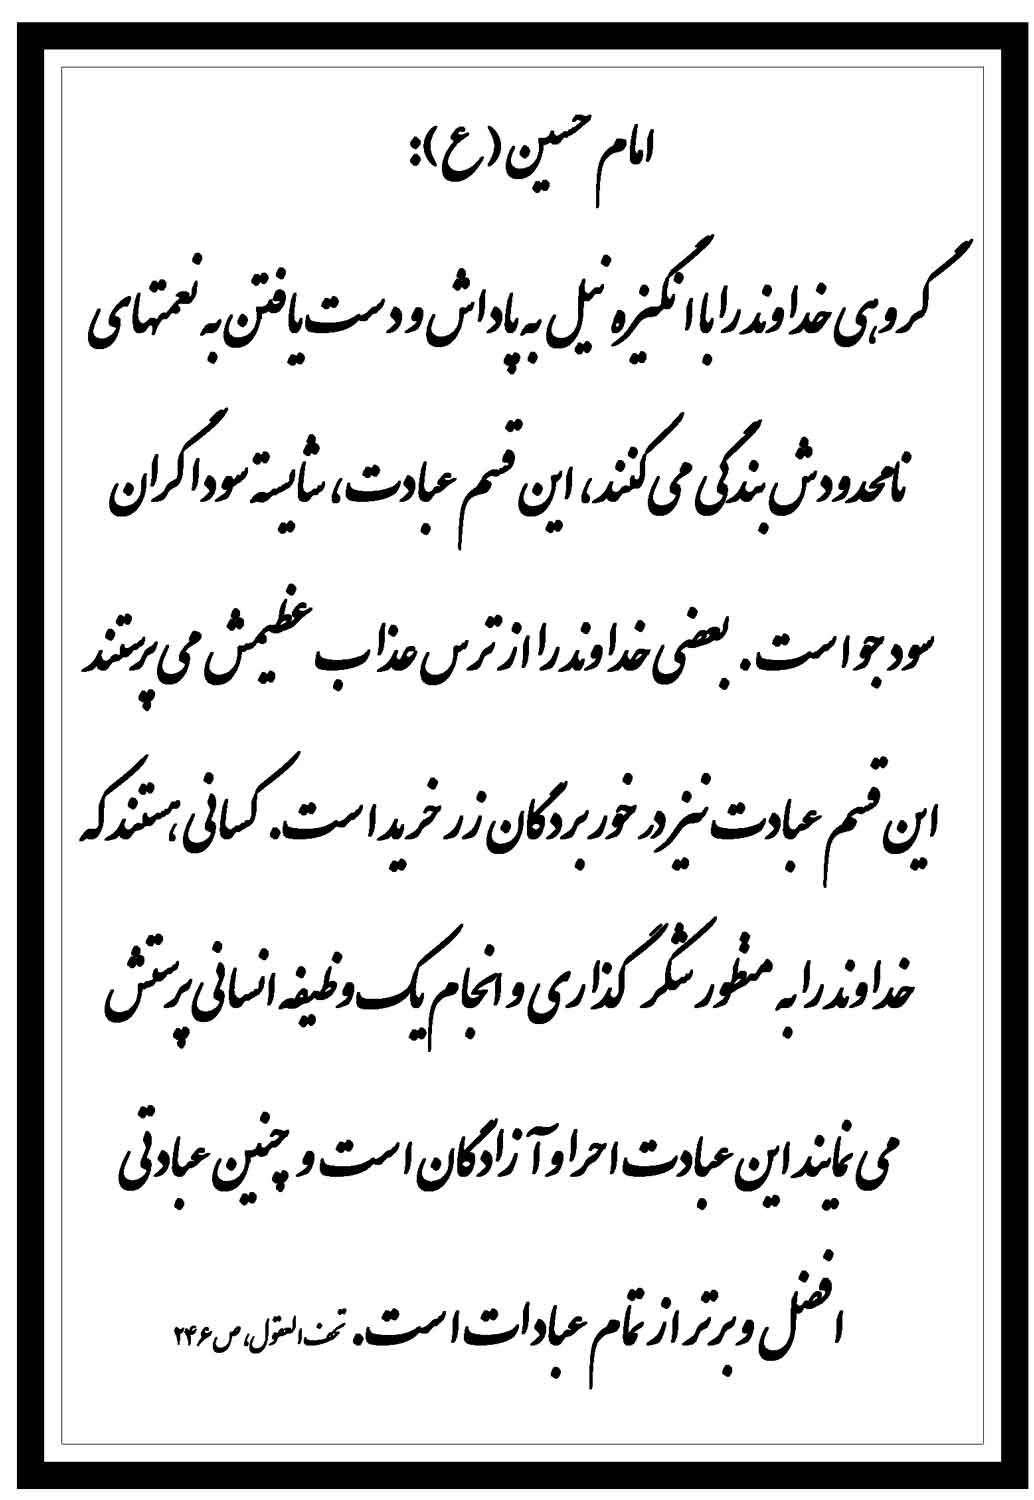 امام حسین (ع):
گروهی خداوند را با انگیزه نیل به پاداش و دست یافتن به نعمتهای
نامحدودش بندگی می کنند، این قسم عبادت، شایسته سوداگران
سودجو است. بعضی خداوند را از ترس عذاب عظیمش می پرستند
این قسم عبادت نیز در خور بردگان زر خرید است. کسانی هستند که
خداوند را به منظور شکرگذاری و انجام یک وظیفه انسانی پرستش
می نمایند این عبادت احرا و آزادگان است و چنین عبادتی
افضل و برتر از تمام عبادات است. تحف العقول، ص ۲۴۶